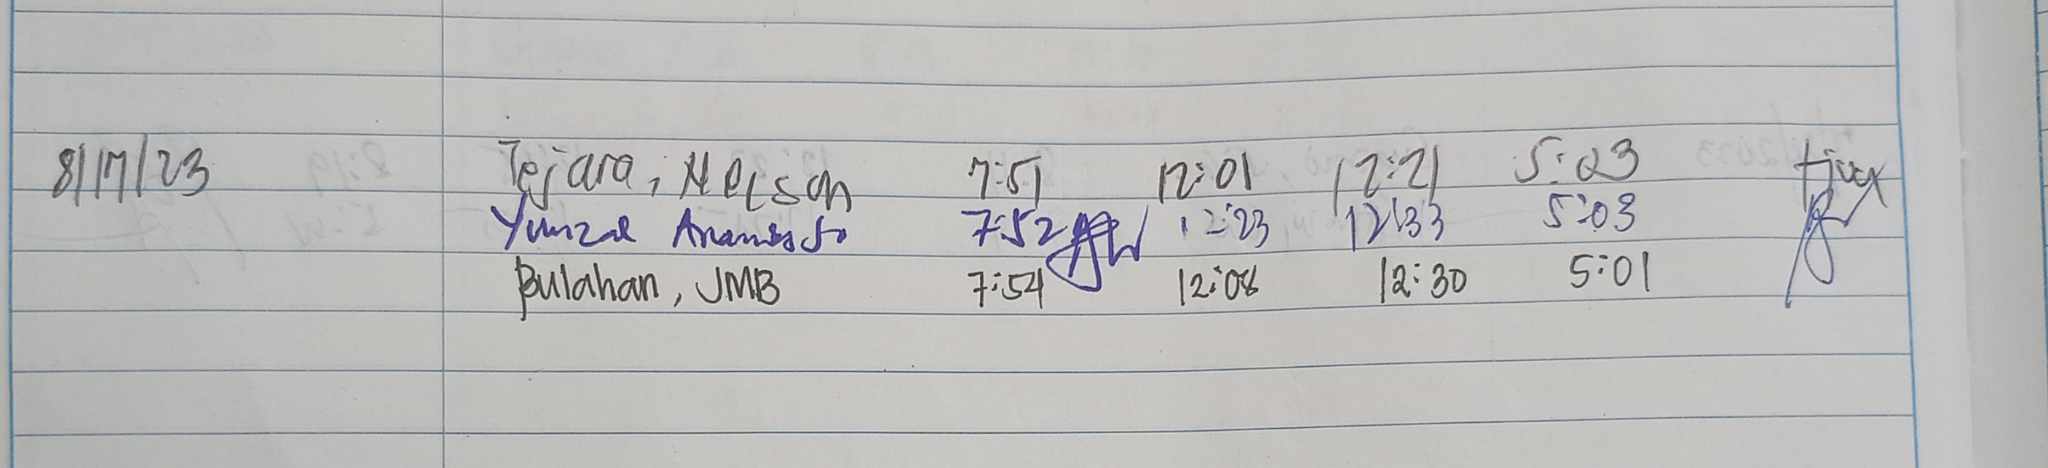 8/17/23 Tejara, Nelson 7:51 12:01 12:21 5:23
7:52 12:23 12:33 5:03
Bulahan, JMB 7:54 12:08 12:30 5:01